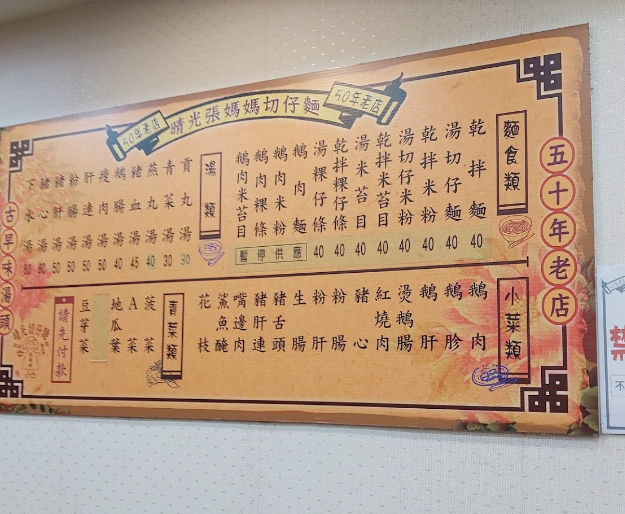 50年老店
晴光張媽媽切仔麵
50年老店
五十年老店
麵食類
乾拌麵 40
湯切仔麵 40
乾拌米粉 40
湯切仔米粉 40
乾拌米苔目 40
湯米苔目 40
乾拌粿仔條 40
湯粿仔條 40
鵝肉麵
鵝肉米粉
鵝肉粿條
鵝肉米苔目
暫停供應
湯類
貢丸湯 30
青菜湯 30
燕丸湯 40
豬血湯 45
鵝腸湯 40
瘦肉湯 50
肝連湯 50
粉腸湯 50
豬肝湯 50
豬心湯
下水湯
小菜類
鵝肉
鵝胗
鵝肝
燙鵝腸
紅燒肉
豬心
粉腸
粉肝
生腸
豬舌頭
豬肝連
嘴邊肉
鯊魚醃
花枝
青菜類
菠菜
A菜
地瓜葉
豆芽菜
請先付款
古早味湯頭
禁
不